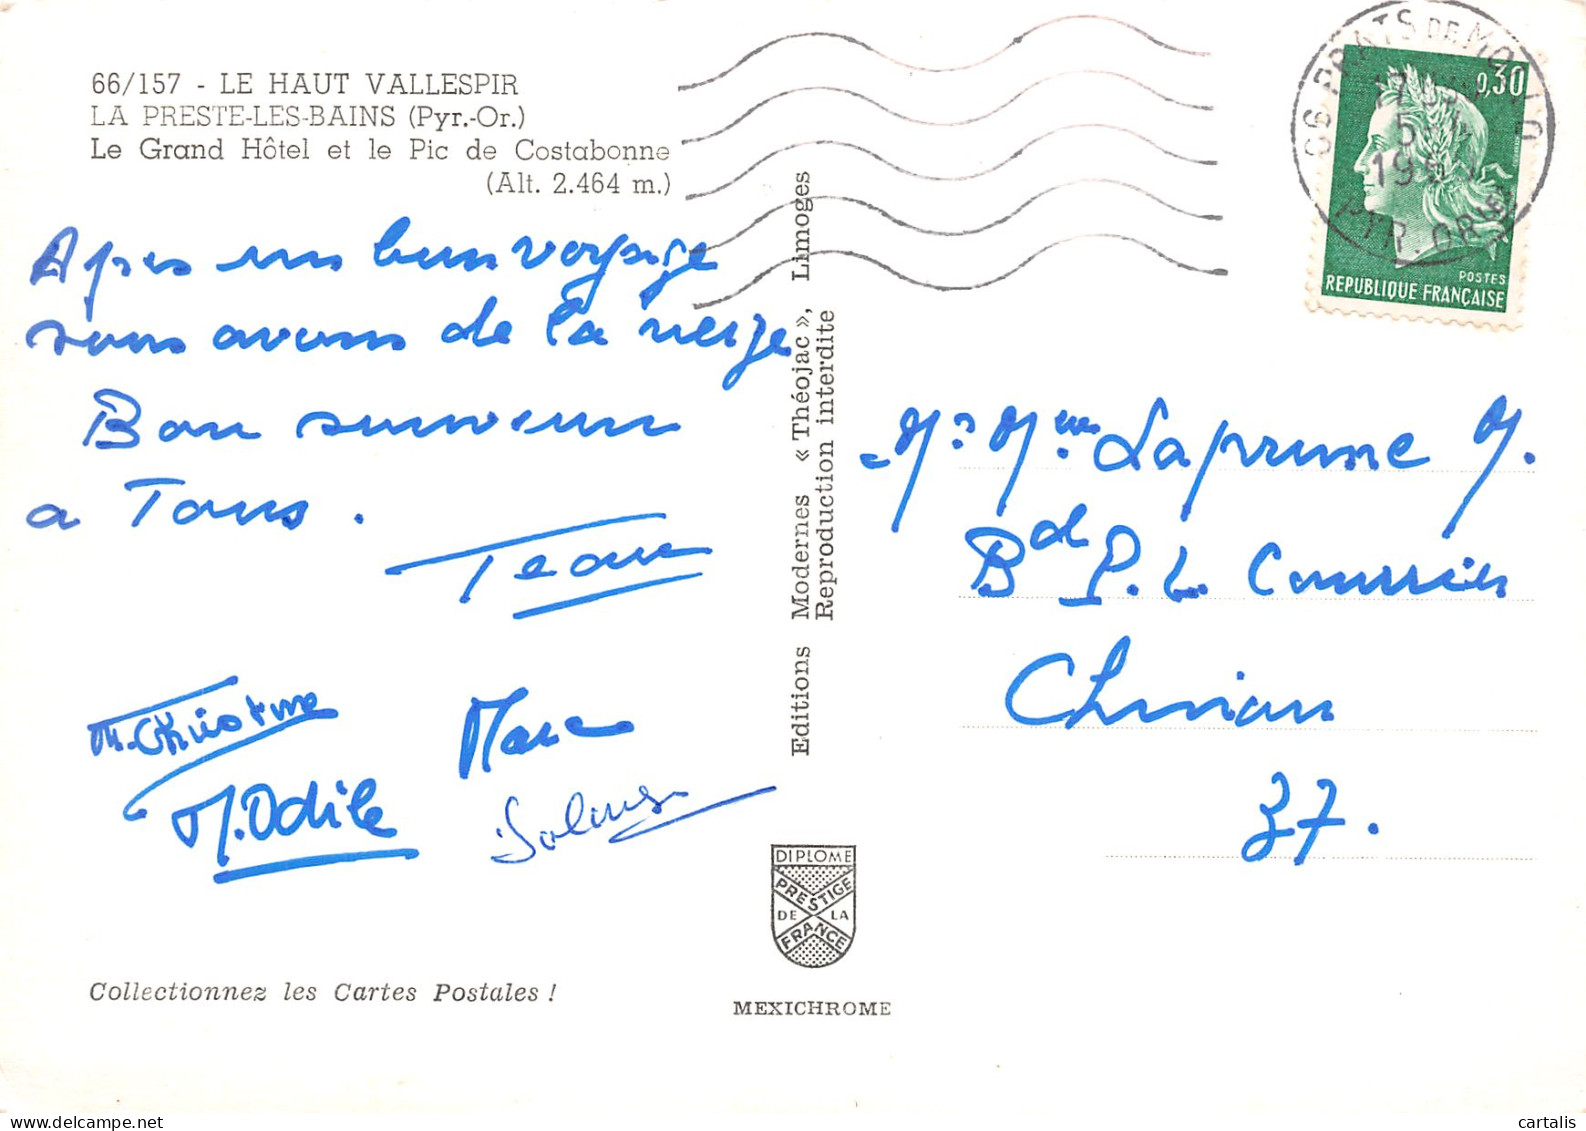 66/157 - LE HAUT VALLESPIR
LA PRESTE-LES-BAINS (Pyr.-Or.)
Le Grand Hôtel et le Pic de Costabonne
(Alt. 2.464 m.)
Apres un bon voyage
nous avons de la neige
Bon souvenir
a Tous.
M. Christine
Marc
M. Odile
Collectionnez les Cartes Postales !
Editions Modernes « Théojac », Limoges
Reproduction interdite
DIPLOME
PRESTIGE
DE LA
FRANCE
MEXICHROME
66 PRATS DE MOLLO
PYR. ORIES
0,30
POSTES
REPUBLIQUE FRANÇAISE
Mr Mme Laprune M.
Bd P. L. Courrier
Chinon
37.
cartalis